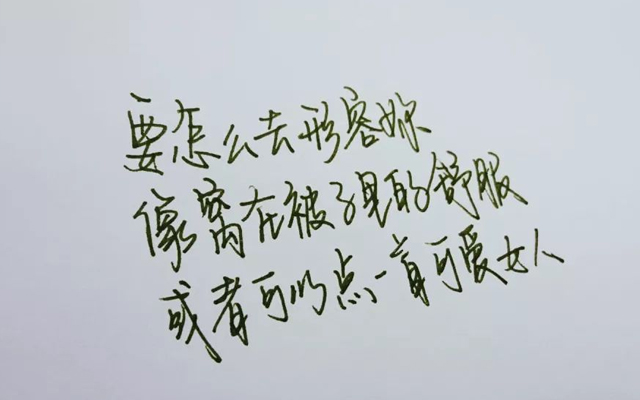 要怎么去形容妳
像窝在被子里的舒服
或者可以点一首可爱女人